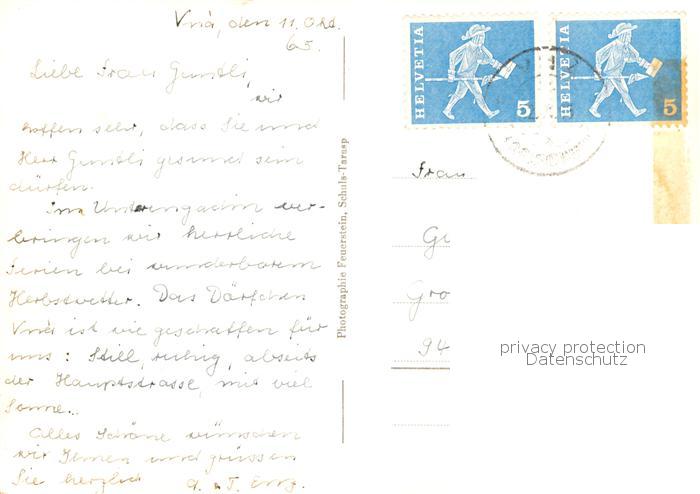 Vnà, den 11. Okt.
65.
Liebe Frau Guntli,
wir
hoffen sehr, dass Sie und
Herr Guntli gesund sein
dürfen.
Im Unterengadin ver-
bringen wir herrliche
Ferien bei wunderbarem
Herbstwetter. Das Dörfchen
Vnà ist wie geschaffen für
uns: Still, ruhig, abseits
der Hauptstrasse, mit viel
Sonne..
Alles Schöne wünschen
wir Ihnen und grüssen
Sie herzlich
Photographie Feuerstein, Schuls-Tarasp
HELVETIA 5
HELVETIA 5
Frau
Gu
Gro
94
privacy protection
Datenschutz